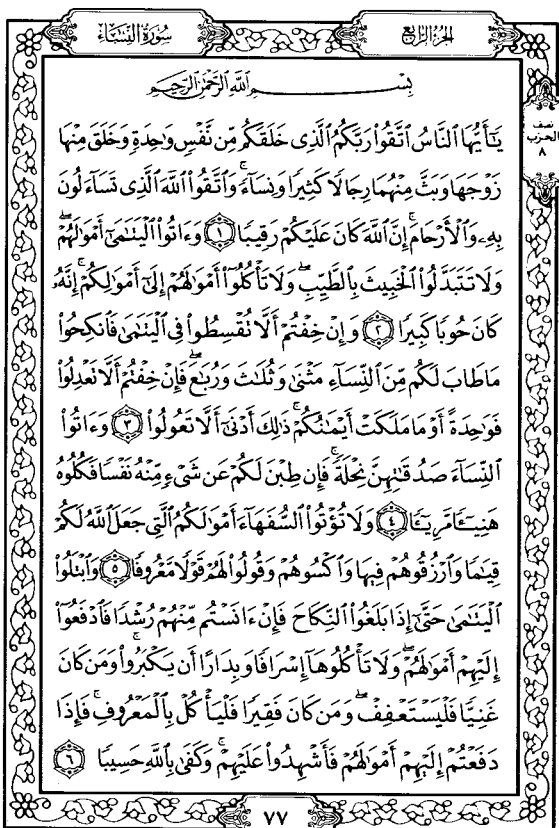 سُورَةُ النِّسَاءِ
الجُزْءُ الرَّابِعُ
بِسْمِ اللَّهِ الرَّحْمَٰنِ الرَّحِيمِ
نصف
الحزب
٨
يَٰٓأَيُّهَا ٱلنَّاسُ ٱتَّقُوا۟ رَبَّكُمُ ٱلَّذِى خَلَقَكُم مِّن نَّفْسٍ وَٰحِدَةٍ وَخَلَقَ مِنْهَا
زَوْجَهَا وَبَثَّ مِنْهُمَا رِجَالًا كَثِيرًا وَنِسَآءً ۚ وَٱتَّقُوا۟ ٱللَّهَ ٱلَّذِى تَسَآءَلُونَ
بِهِۦ وَٱلْأَرْحَامَ ۚ إِنَّ ٱللَّهَ كَانَ عَلَيْكُمْ رَقِيبًا ١ وَءَاتُوا۟ ٱلْيَتَٰمَىٰٓ أَمْوَٰلَهُمْ ۖ
وَلَا تَتَبَدَّلُوا۟ ٱلْخَبِيثَ بِٱلطَّيِّبِ ۖ وَلَا تَأْكُلُوٓا۟ أَمْوَٰلَهُمْ إِلَىٰٓ أَمْوَٰلِكُمْ ۚ إِنَّهُۥ
كَانَ حُوبًا كَبِيرًا ٢ وَإِنْ خِفْتُمْ أَلَّا تُقْسِطُوا۟ فِى ٱلْيَتَٰمَىٰ فَٱنكِحُوا۟
مَا طَابَ لَكُم مِّنَ ٱلنِّسَآءِ مَثْنَىٰ وَثُلَٰثَ وَرُبَٰعَ ۖ فَإِنْ خِفْتُمْ أَلَّا تَعْدِلُوا۟
فَوَٰحِدَةً أَوْ مَا مَلَكَتْ أَيْمَٰنُكُمْ ۚ ذَٰلِكَ أَدْنَىٰٓ أَلَّا تَعُولُوا۟ ٣ وَءَاتُوا۟
ٱلنِّسَآءَ صَدُقَٰتِهِنَّ نِحْلَةً ۚ فَإِن طِبْنَ لَكُمْ عَن شَىْءٍ مِّنْهُ نَفْسًا فَكُلُوهُ
هَنِيٓـًٔا مَّرِيٓـًٔا ٤ وَلَا تُؤْتُوا۟ ٱلسُّفَهَآءَ أَمْوَٰلَكُمُ ٱلَّتِى جَعَلَ ٱللَّهُ لَكُمْ
قِيَٰمًا وَٱرْزُقُوهُمْ فِيهَا وَٱكْسُوهُمْ وَقُولُوا۟ لَهُمْ قَوْلًا مَّعْرُوفًا ٥ وَٱبْتَلُوا۟
ٱلْيَتَٰمَىٰ حَتَّىٰٓ إِذَا بَلَغُوا۟ ٱلنِّكَاحَ فَإِنْ ءَانَسْتُم مِّنْهُمْ رُشْدًا فَٱدْفَعُوٓا۟
إِلَيْهِمْ أَمْوَٰلَهُمْ ۖ وَلَا تَأْكُلُوهَآ إِسْرَافًا وَبِدَارًا أَن يَكْبَرُوا۟ ۚ وَمَن كَانَ
غَنِيًّا فَلْيَسْتَعْفِفْ ۖ وَمَن كَانَ فَقِيرًا فَلْيَأْكُلْ بِٱلْمَعْرُوفِ ۚ فَإِذَا
دَفَعْتُمْ إِلَيْهِمْ أَمْوَٰلَهُمْ فَأَشْهِدُوا۟ عَلَيْهِمْ ۚ وَكَفَىٰ بِٱللَّهِ حَسِيبًا ٦
٧٧